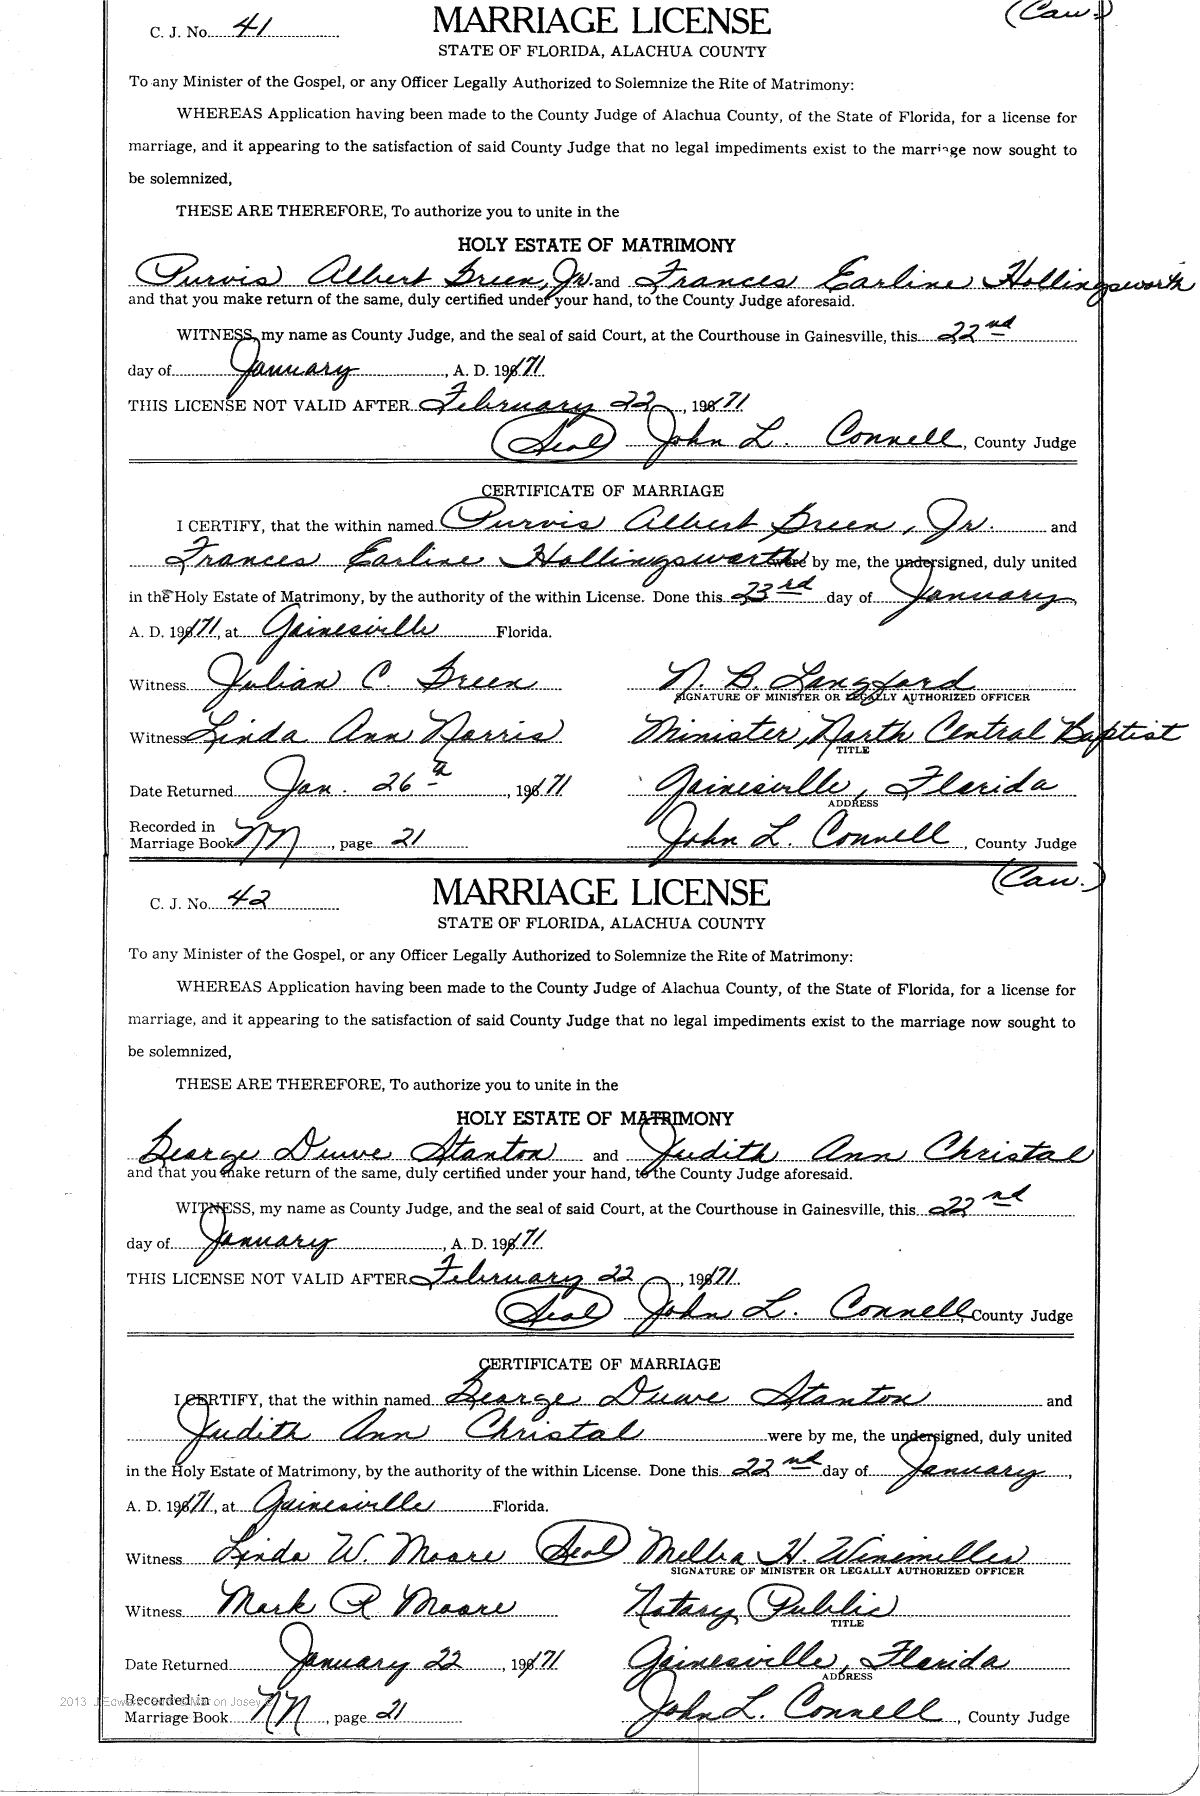 (Cau.)
C. J. No. 41
MARRIAGE LICENSE
STATE OF FLORIDA, ALACHUA COUNTY
To any Minister of the Gospel, or any Officer Legally Authorized to Solemnize the Rite of Matrimony:
WHEREAS Application having been made to the County Judge of Alachua County, of the State of Florida, for a license for
marriage, and it appearing to the satisfaction of said County Judge that no legal impediments exist to the marriage now sought to
be solemnized,
THESE ARE THEREFORE, To authorize you to unite in the
HOLY ESTATE OF MATRIMONY
Purvis Albert Green, Jr. and Frances Earline Hollingsworth
and that you make return of the same, duly certified under your hand, to the County Judge aforesaid.
WITNESS, my name as County Judge, and the seal of said Court, at the Courthouse in Gainesville, this 22nd
day of January, A. D. 1971.
THIS LICENSE NOT VALID AFTER February 22, 1971.
(Seal) John L. Connell, County Judge
CERTIFICATE OF MARRIAGE
I CERTIFY, that the within named Purvis Albert Green, Jr. and
Frances Earline Hollingsworth were by me, the undersigned, duly united
in the Holy Estate of Matrimony, by the authority of the within License. Done this 23rd day of January,
A. D. 1971, at Gainesville Florida.
Witness Julian C. Green N. B. Langford
SIGNATURE OF MINISTER OR LEGALLY AUTHORIZED OFFICER
Witness Linda Ann Norris Minister, North Central Baptist
TITLE
Date Returned Jan. 26th, 1971 Gainesville, Florida
ADDRESS
Recorded in
Marriage Book NN, page 21 John L. Connell, County Judge
(Cau.)
C. J. No. 42
MARRIAGE LICENSE
STATE OF FLORIDA, ALACHUA COUNTY
To any Minister of the Gospel, or any Officer Legally Authorized to Solemnize the Rite of Matrimony:
WHEREAS Application having been made to the County Judge of Alachua County, of the State of Florida, for a license for
marriage, and it appearing to the satisfaction of said County Judge that no legal impediments exist to the marriage now sought to
be solemnized,
THESE ARE THEREFORE, To authorize you to unite in the
HOLY ESTATE OF MATRIMONY
George Duwe Stanton and Judith Ann Christal
and that you make return of the same, duly certified under your hand, to the County Judge aforesaid.
WITNESS, my name as County Judge, and the seal of said Court, at the Courthouse in Gainesville, this 22nd
day of January, A. D. 1971.
THIS LICENSE NOT VALID AFTER February 22, 1971.
(Seal) John L. Connell, County Judge
CERTIFICATE OF MARRIAGE
I CERTIFY, that the within named George Duwe Stanton and
Judith Ann Christal were by me, the undersigned, duly united
in the Holy Estate of Matrimony, by the authority of the within License. Done this 22nd day of January,
A. D. 1971, at Gainesville Florida.
Witness Linda W. Moore (Seal) Melba H. Winemiller
SIGNATURE OF MINISTER OR LEGALLY AUTHORIZED OFFICER
Witness Mark R Moore Notary Public
TITLE
Date Returned January 22, 1971 Gainesville, Florida
ADDRESS
2013
Recorded in
Marriage Book NN, page 21 John L. Connell, County Judge